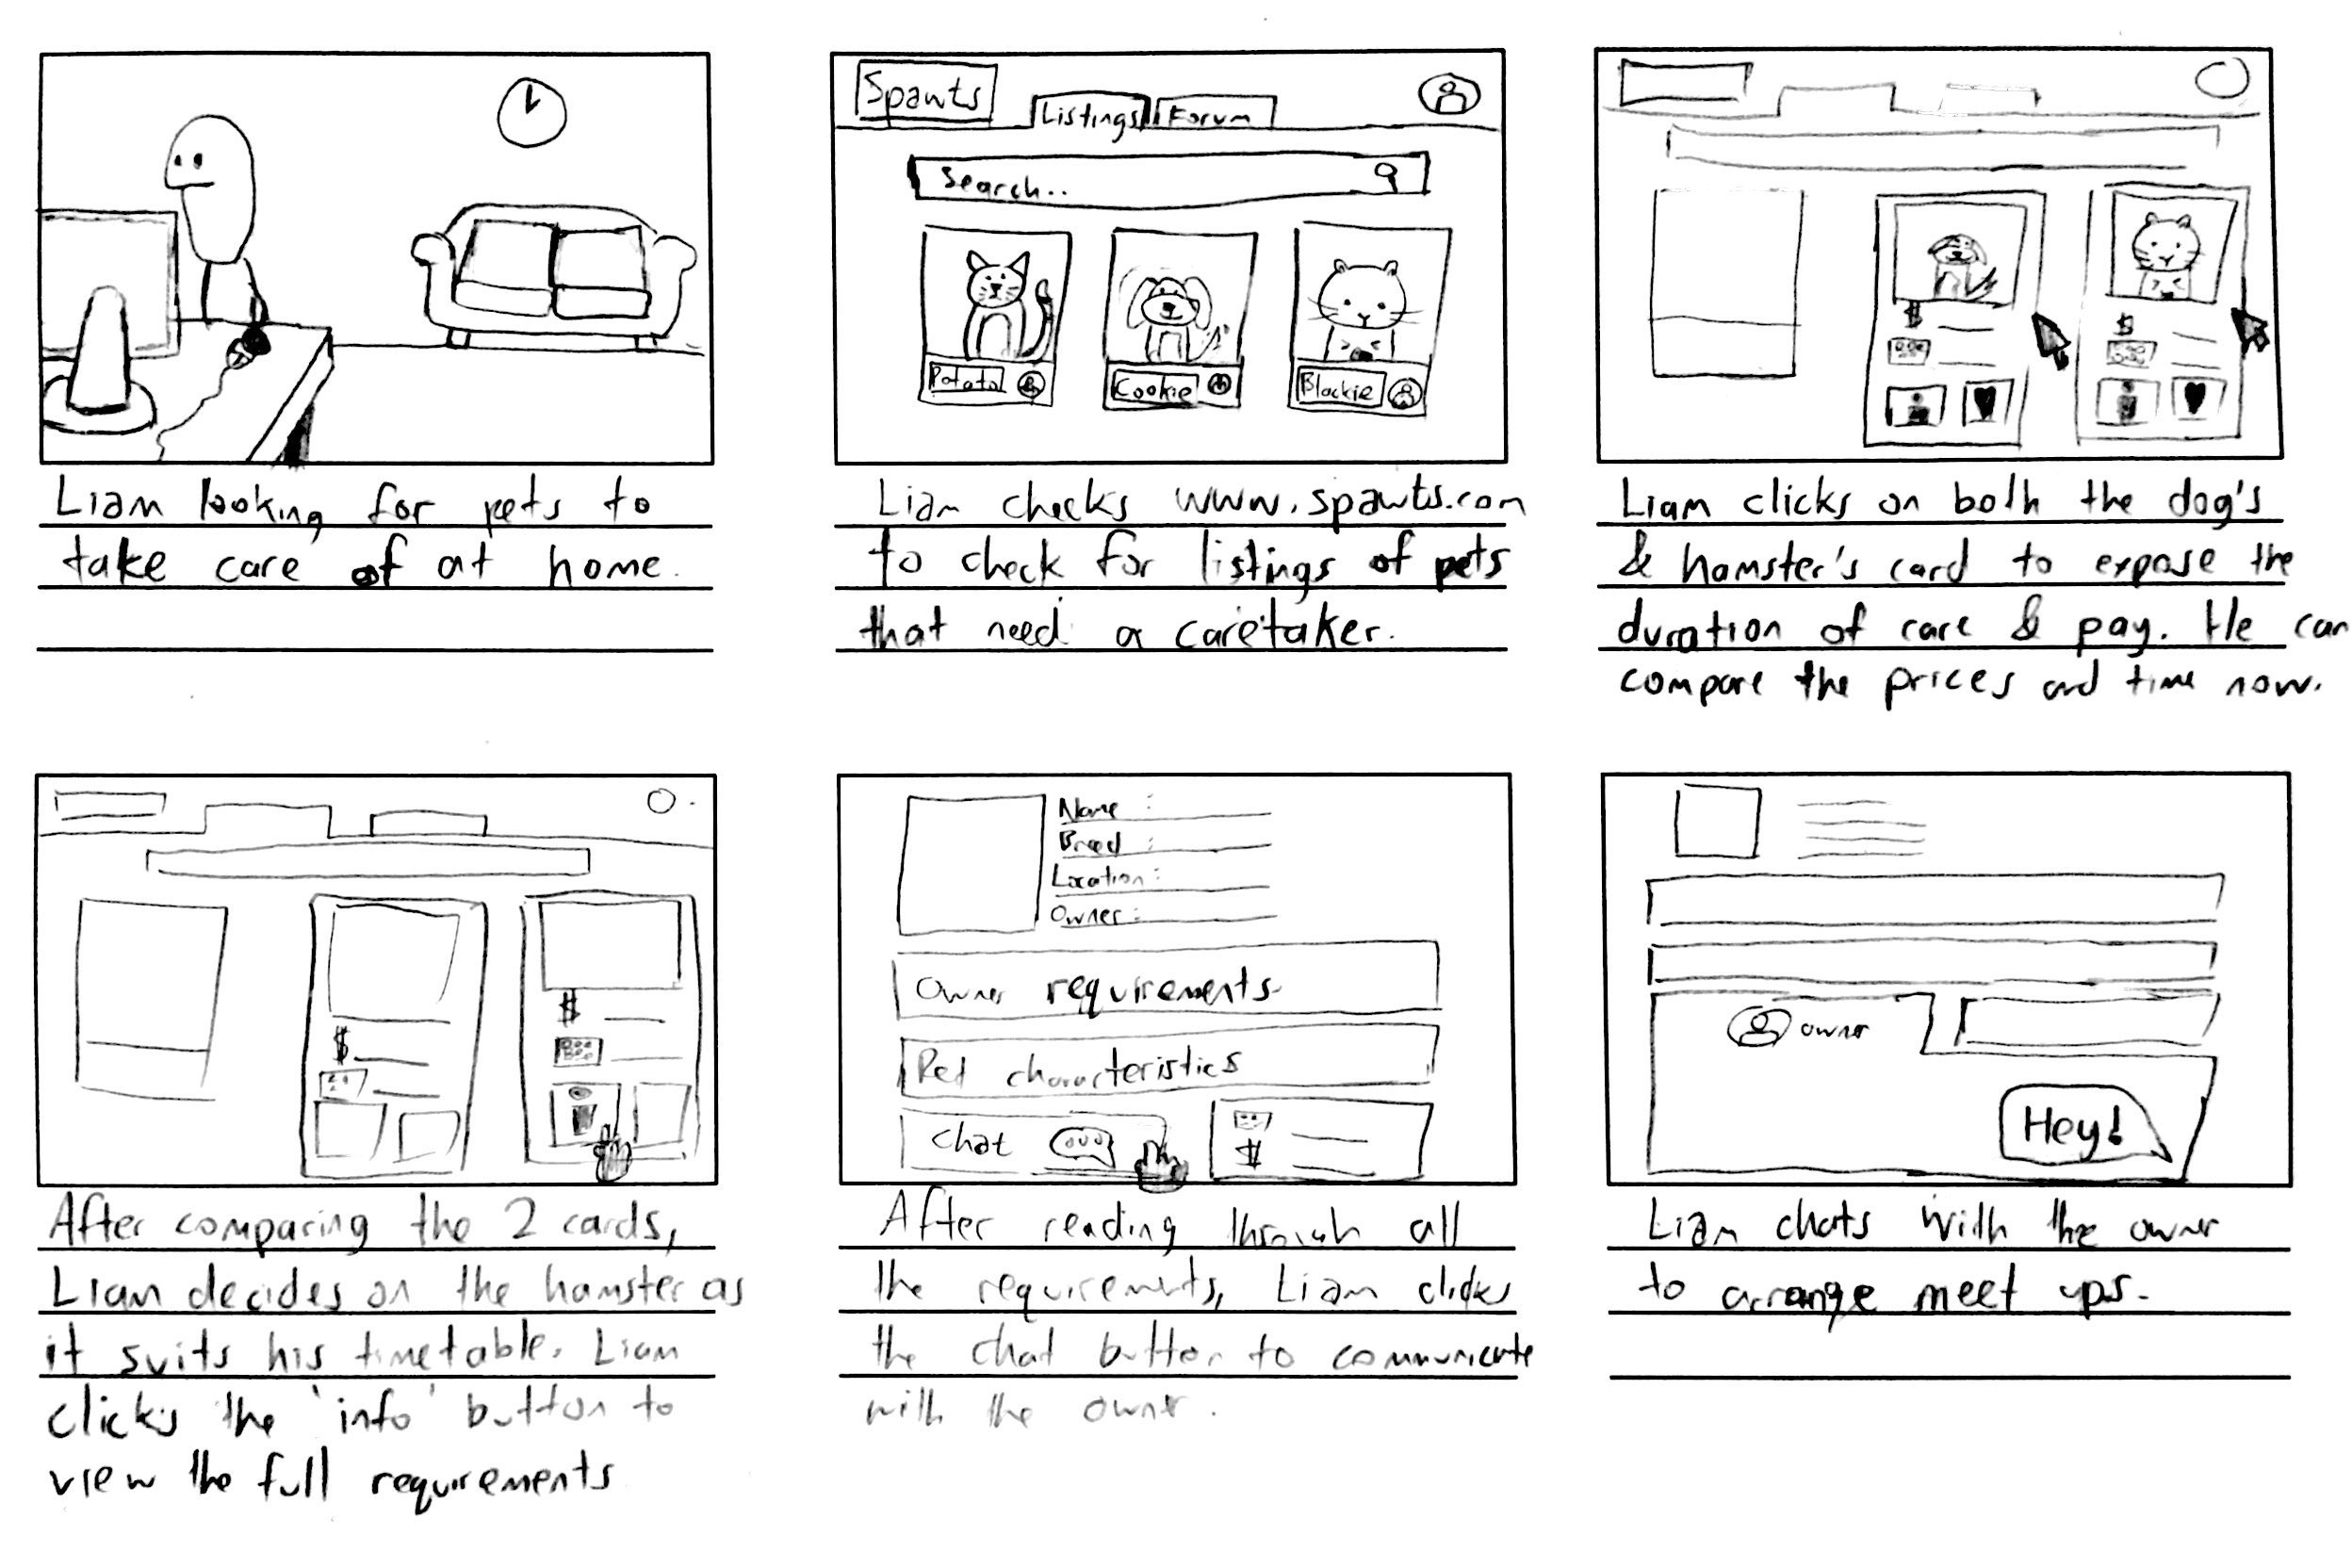 Liam looking for pets to
take care of at home.
Spawts
Listings
Forum
Search..
Potato
Cookie
Blackie
Liam checks www.spawts.com
to check for listings of pets
that need a caretaker.
$
$
Liam clicks on both the dog's
& hamster's card to expose the
duration of care & pay. He can
compare the prices and time now.
$
$
After comparing the 2 cards,
Liam decides on the hamster as
it suits his timetable. Liam
clicks the 'info' button to
view the full requirements
Name :
Breed :
Location :
Owner :
Owner requirements
Pet characteristics
Chat
$
After reading through all
the requirements, Liam clicks
the chat button to communicate
with the owner.
owner
Hey!
Liam chats with the owner
to arrange meet ups.